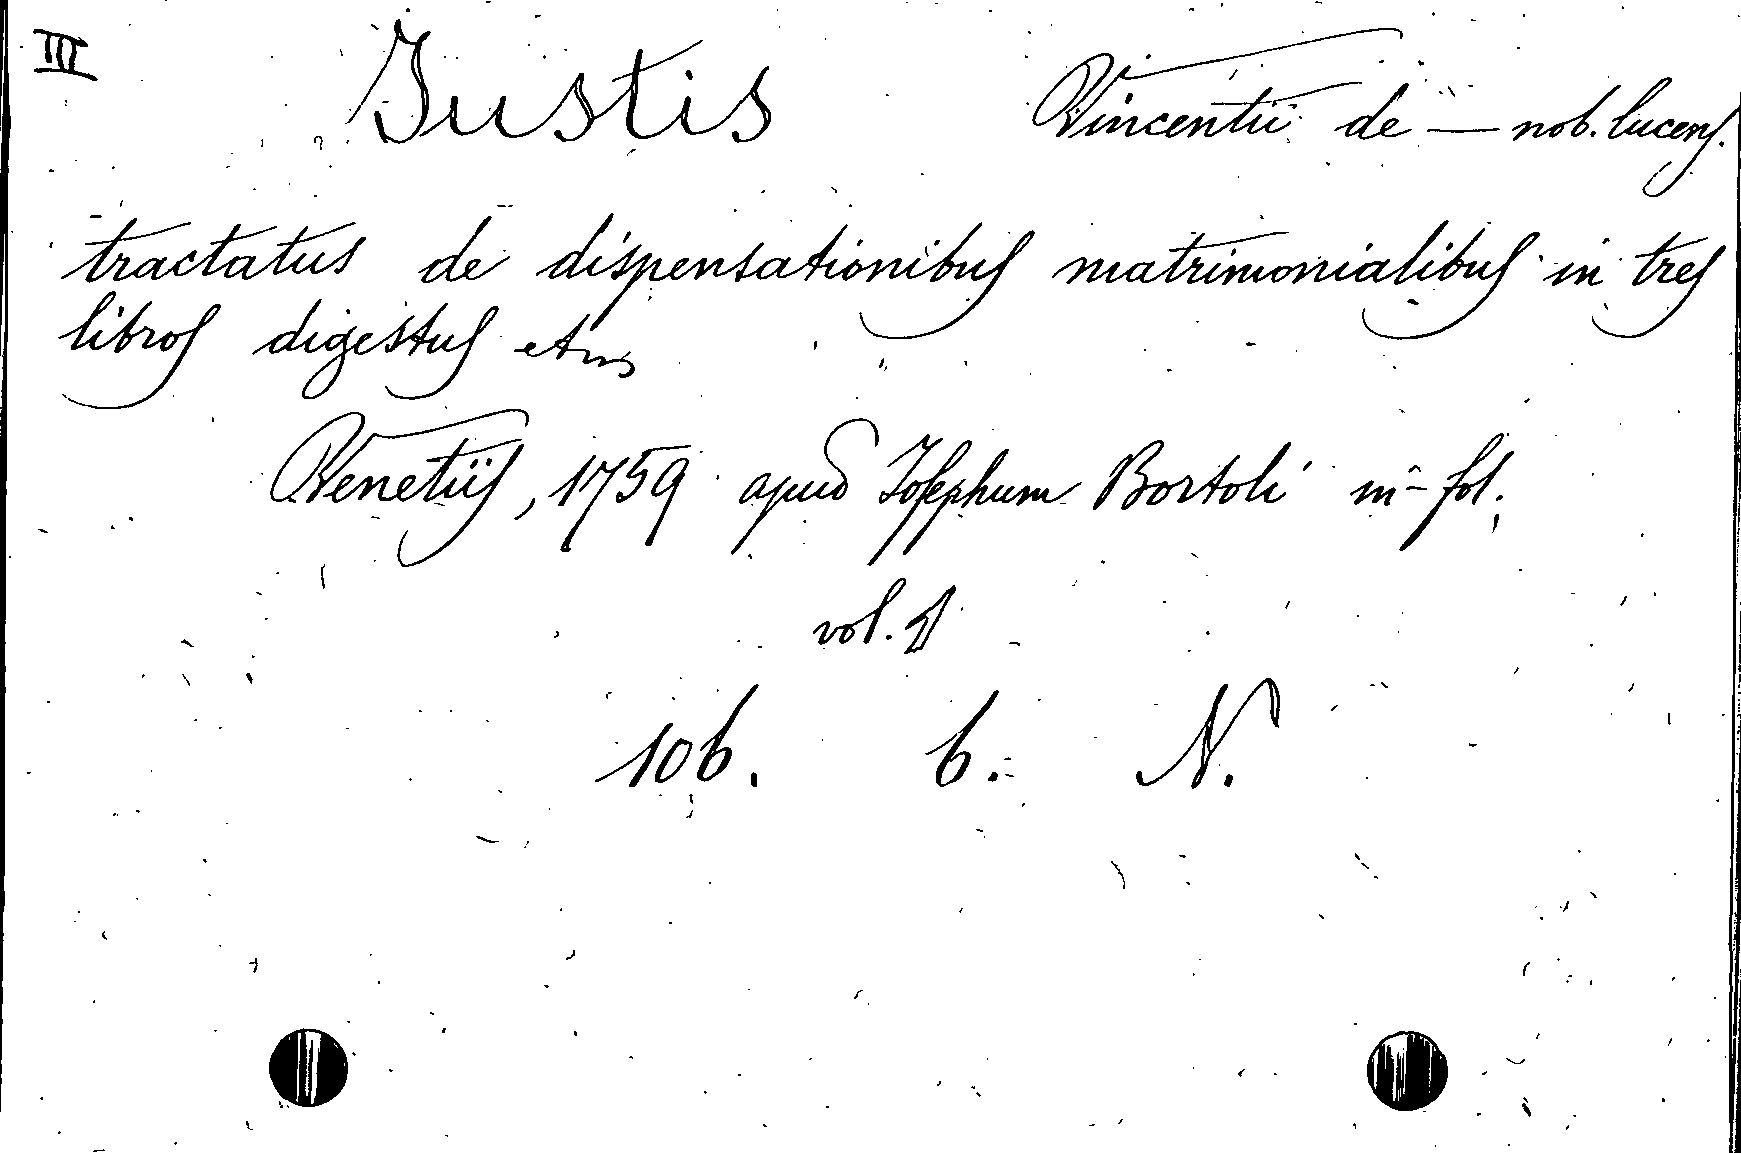 III Justis Vincentii de — nob. lucens.
tractatus de dispensationibus matrimonialibus in tres
libros digestus
Venetiis, 1759 apud Josephum Bortoli in-fol.
vol. 1
106. 6. N.